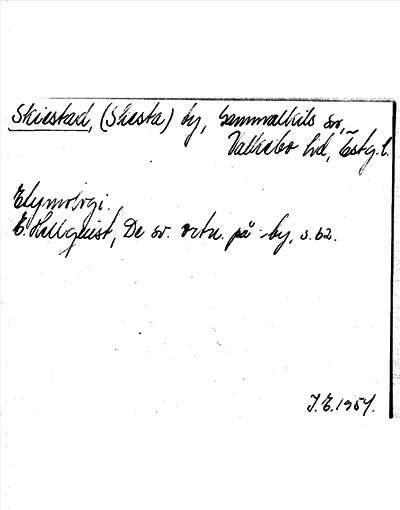 Skiestad, (Skesta) by, Gammalkils sn,
Valkebo hd, Östg.l.
Etymologi.
E. Hellquist, De sv. ortn. på -by, s. 62.
J.E. 1954.